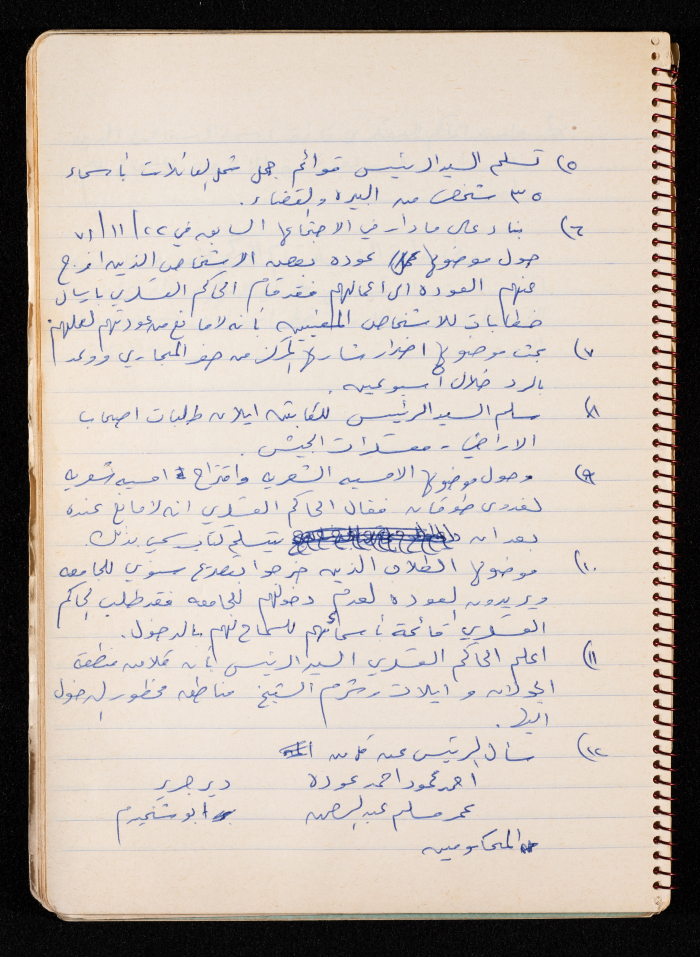 ٥) تسلم السيد الرئيس قوائم جمع شمل العائلات بأسماء
٣٥ شخص من البيره والقضاء.
٦) بناء على ما دار في الاجتماع السابق في ٢٢/١١/٧١
حول موضوع عودة بعض الاشخاص الذين افرج
عنهم العوده الى اعمالهم فقد قام الحاكم العسكري بارسال
خطابات للاشخاص المعنيين بأنه لا مانع من عودتهم لعملهم
٧) بحث موضوع اضرار شارع المركز من حفر المجاري ووعد
بالرد خلال أسبوعين.
٨) سلم السيد الرئيس للكابتن ايلان طلبات اصحاب
الاراضي - معسكرات الجيش.
٩) وحول موضوع الامسيه الشعريه واقتراح امسيه شعريه
لفدوى طوقان فقال الحاكم العسكري انه لا مانع عنده
بعد ان يتسلم كتاب رسمي بذلك.
١٠) موضوع الطلاب الذين خرجوا بتصريح سنوي للجامعه
ويريدون العوده لعدم دخولهم للجامعه فقد طلب الحاكم
العسكري قائمة بأسمائهم للسماح لهم بالدخول.
١١) اعلم الحاكم العسكري السيد الرئيس بأن كلا من منطقة
الجولان و ايلات وشرم الشيخ مناطق محظور الدخول
اليها.
١٢) سأل الرئيس عن كل من
احمد محمود احمد عوده دير جرير
عمر مسلم عبد الرحمن ابو شخيدم
المحكومين